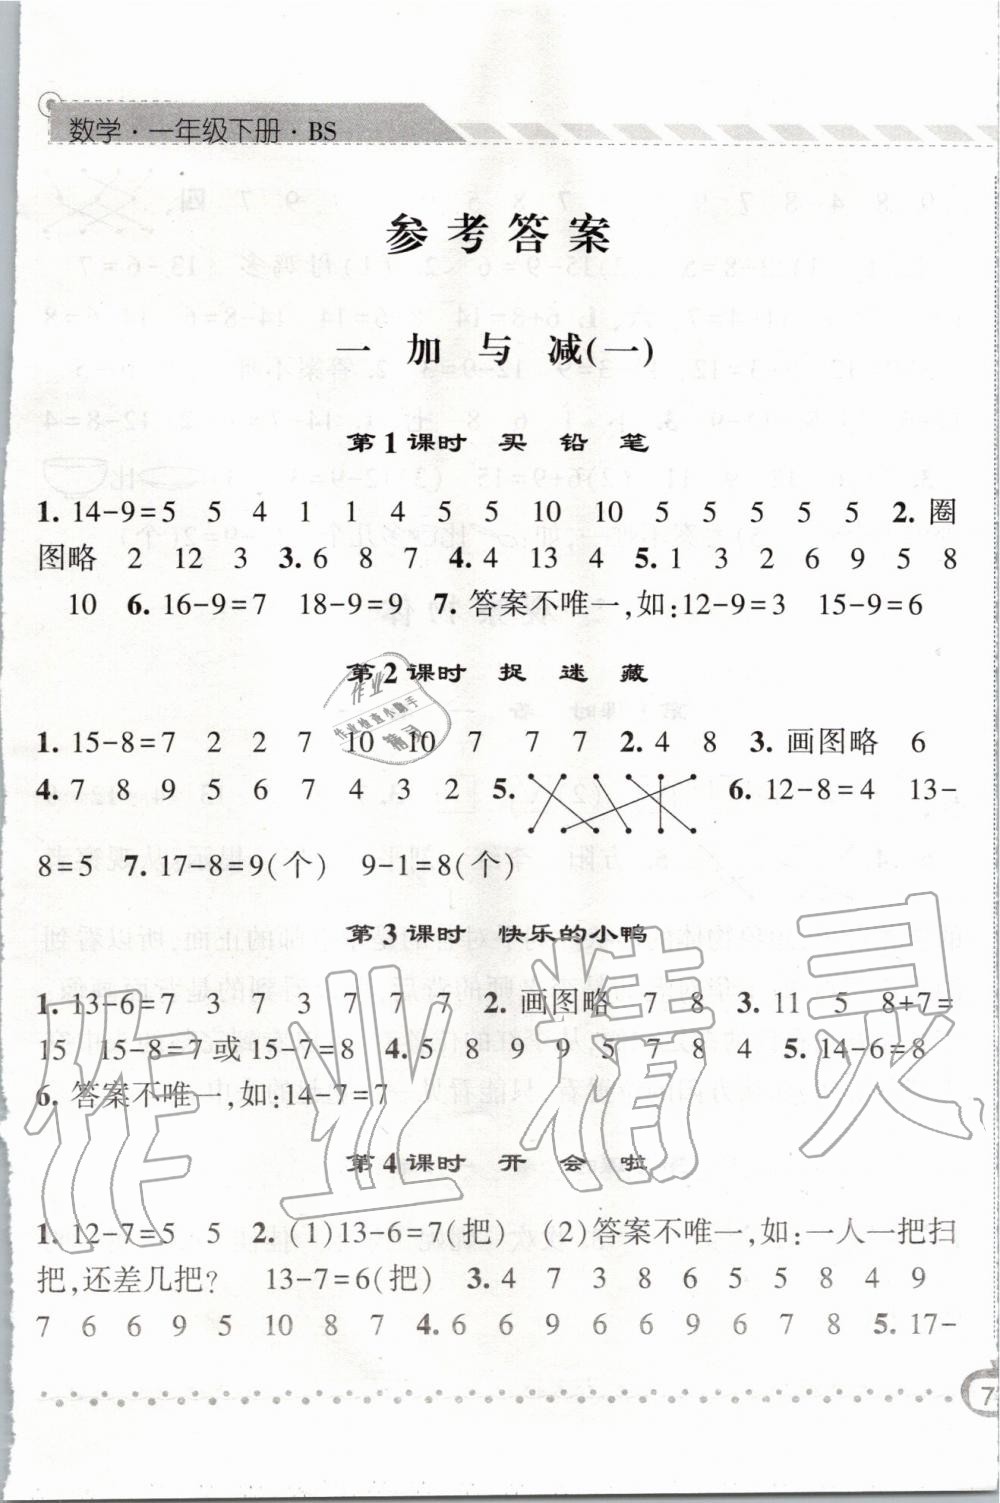 数学·一年级下册·BS
参考答案
一 加 与 减(一)
第1课时 买 铅 笔
1. 14-9=5 5 4 1 1 4 5 5 10 10 5 5 5 5 5 2. 圈
图略 2 12 3 3. 6 8 7 4. 4 13 4 5. 1 3 2 6 9 5 8
10 6. 16-9=7 18-9=9 7. 答案不唯一,如:12-9=3 15-9=6
第2课时 捉 迷 藏
1. 15-8=7 2 2 7 10 10 7 7 7 7 2. 4 8 3. 画图略 6
4. 7 8 9 5 6 7 4 3 2 5. 6. 12-8=4 13-
8=5 7. 17-8=9(个) 9-1=8(个)
第3课时 快乐的小鸭
1. 13-6=7 3 7 3 7 7 7 2. 画图略 7 8 3. 11 5 8+7=
15 15-8=7或15-7=8 4. 5 8 9 9 5 7 8 4 5. 14-6=8
6. 答案不唯一,如:14-7=7
第4课时 开 会 啦
1. 12-7=5 5 2. (1)13-6=7(把) (2)答案不唯一,如:一人一把扫
把,还差几把? 13-7=6(把) 3. 4 7 3 8 6 5 5 8 4 9
7 6 6 9 5 10 8 7 4. 6 6 9 6 6 9 6 7 8 5. 17-
7
作业
作业检查小助手
精灵
作业精灵